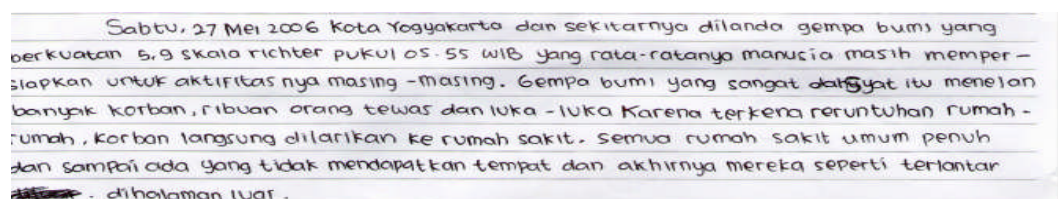 Sabtu, 27 Mei 2006 Kota Yogyakarta dan sekitarnya dilanda gempa bumi yang
berkuatan 5,9 skala richter pukul 05.55 WIB yang rata-ratanya manusia masih memper-
siapkan untuk aktifitas nya masing-masing. Gempa bumi yang sangat dahsyat itu menelan
banyak korban, ribuan orang tewas dan luka-luka karena terkena reruntuhan rumah-
rumah, korban langsung dilarikan ke rumah sakit. Semua rumah sakit umum penuh
dan sampai ada yang tidak mendapatkan tempat dan akhirnya mereka seperti terlantar
. dihalaman luar.